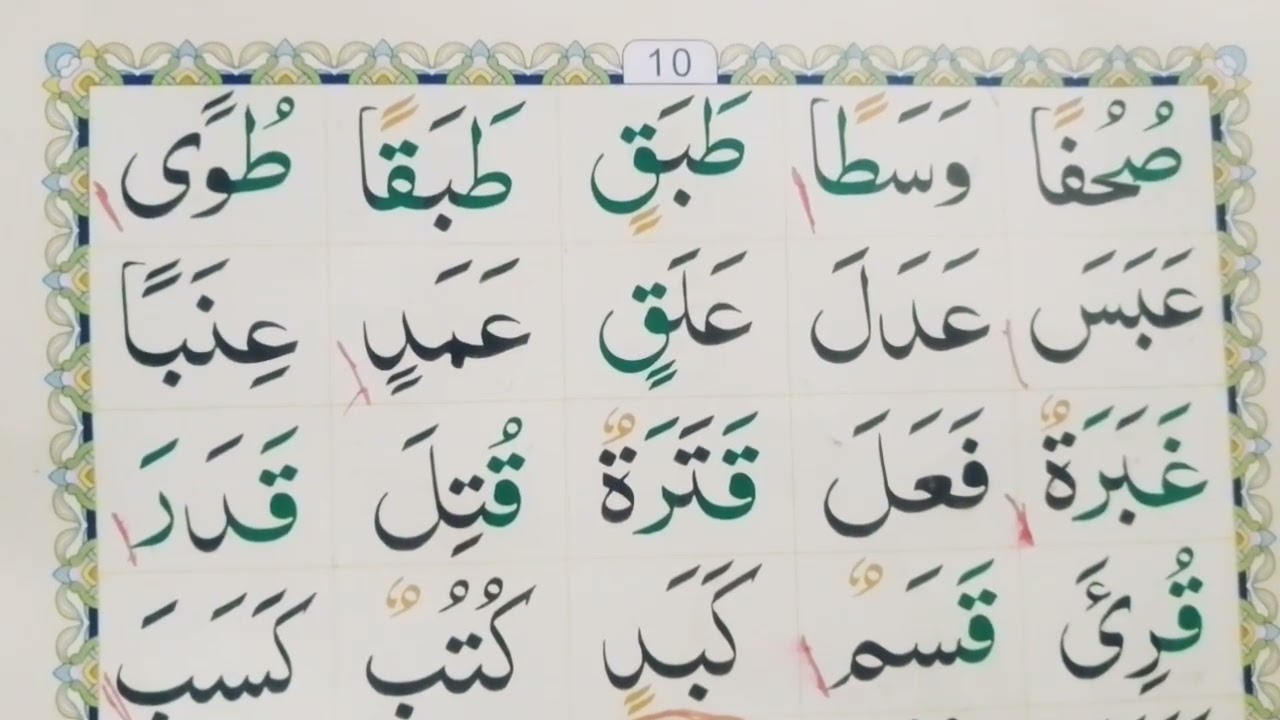 10
صُحُفًا وَسَطًا طَبَقٍ طَبَقًا طُوًى
عَبَسَ عَدَلَ عَلَقٍ عَمَدٍ عِنَبًا
غَبَرَةٌ فَعَلَ قَتَرَةٌ قُتِلَ قَدَرَ
قُرِئَ قَسَمٌ كَبَدٍ كُتُبٌ كَسَبَ